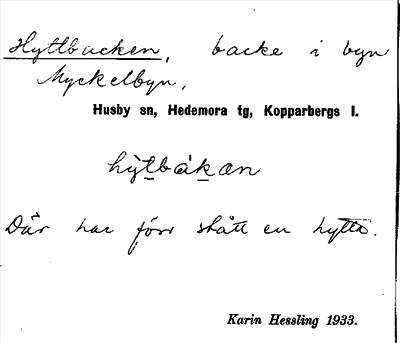 Hyttbacken, backe i byn
Myckelbyn,
Husby sn, Hedemora tg, Kopparbergs l.
hỳt̲bàk̲an
Där har förr stått en hytta.
Karin Hessling 1933.